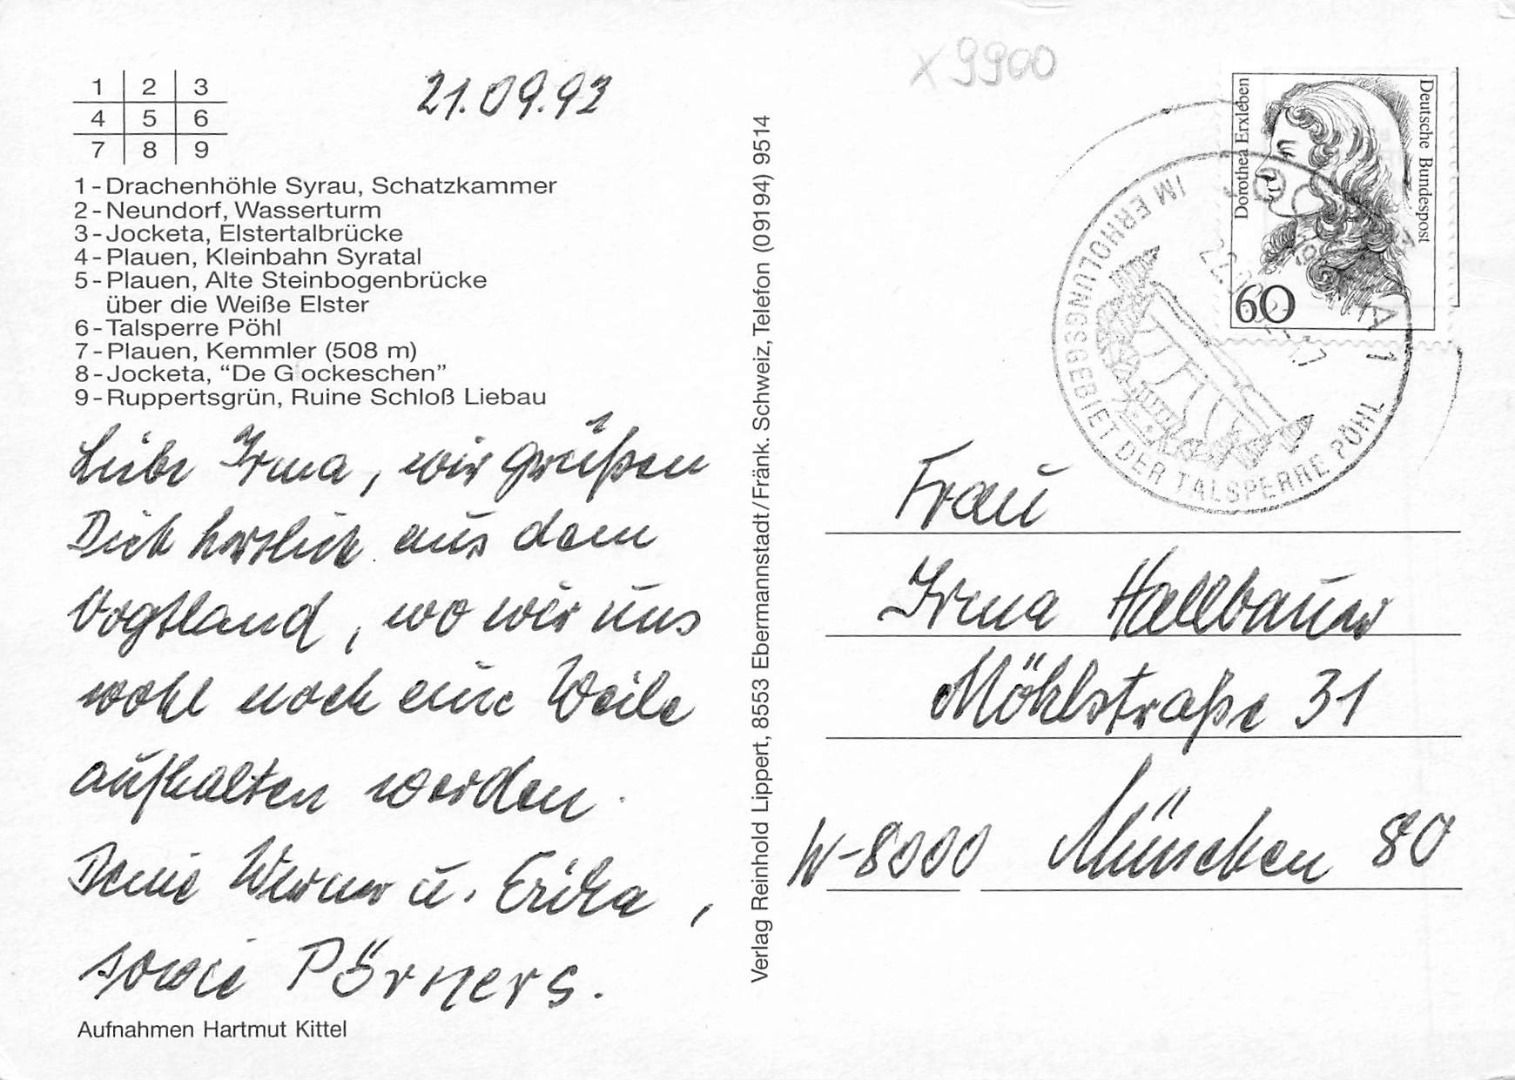 x 9900
21.09.92
1 2 3
4 5 6
7 8 9
1 - Drachenhöhle Syrau, Schatzkammer
2 - Neundorf, Wasserturm
3 - Jocketa, Elstertalbrücke
4 - Plauen, Kleinbahn Syratal
5 - Plauen, Alte Steinbogenbrücke
über die Weiße Elster
6 - Talsperre Pöhl
7 - Plauen, Kemmler (508 m)
8 - Jocketa, “De G ockeschen”
9 - Ruppertsgrün, Ruine Schloß Liebau
Liebe Irma, wir grüßen
Dich herzlich aus dem
Vogtland, wo wir uns
wohl noch eine Weile
aufhalten werden.
Deine Werner u. Erika,
sowie Pörners.
Aufnahmen Hartmut Kittel
Verlag Reinhold Lippert, 8553 Ebermannstadt/Fränk. Schweiz, Telefon (09194) 9514
Dorothea Erxleben
Deutsche Bundespost
60
IM ERHOLUNGSGEBIET DER TALSPERRE PÖHL
Frau
Irma Hallbauer
Möhlstraße 31
W-8000 München 80